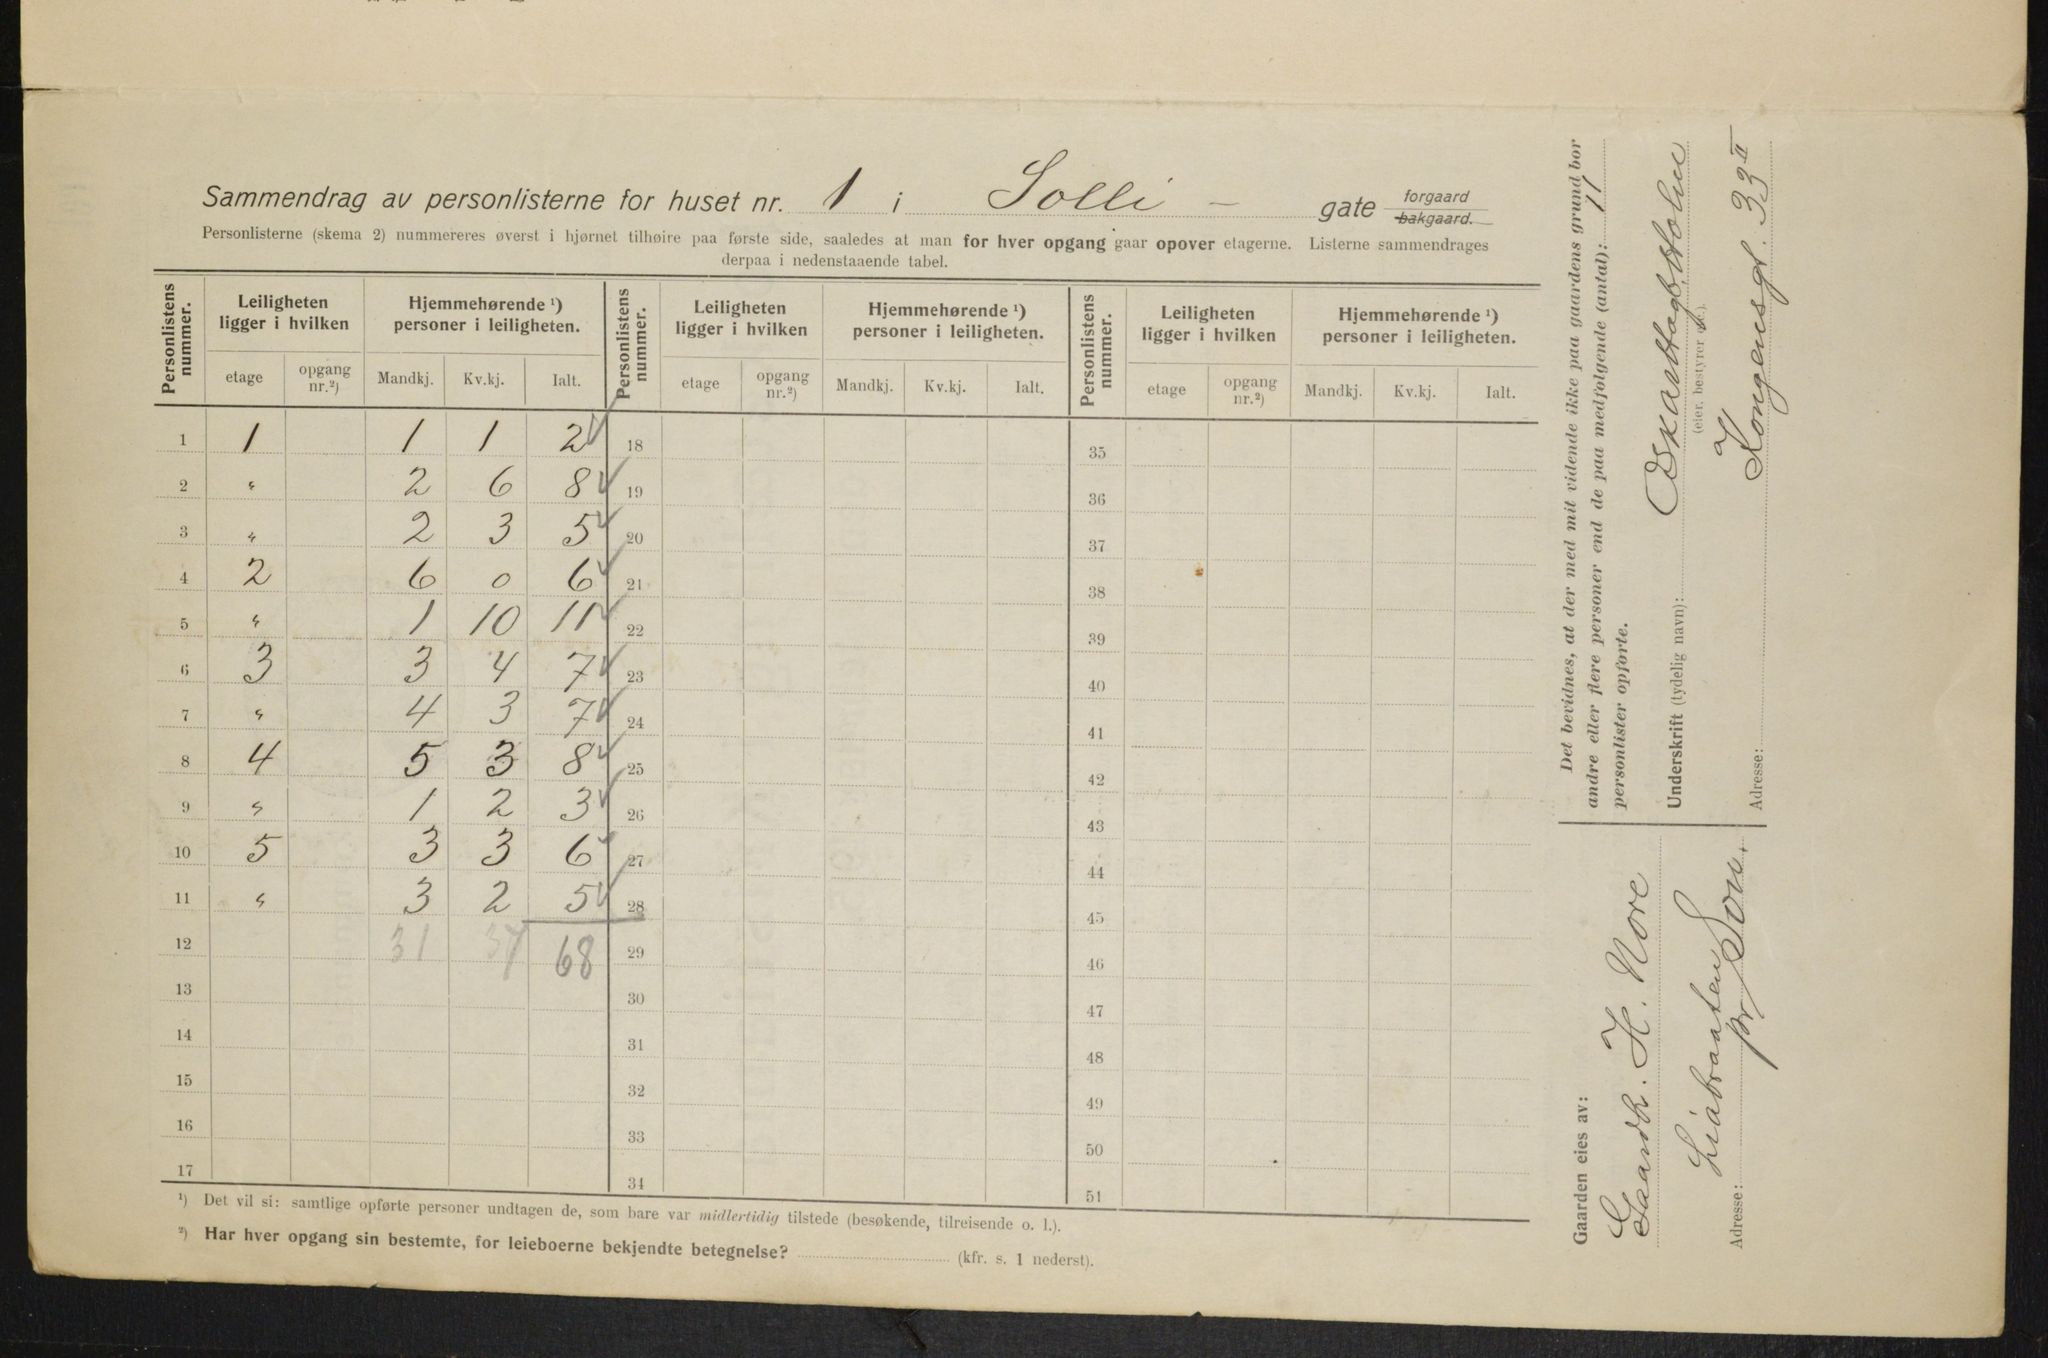 Sammendrag av personlisterne for huset nr. 1 i Solli - gate forgaard bakgaard.
Personlisterne (skema 2) nummereres øverst i hjørnet tilhøire paa første side, saaledes at man for hver opgang gaar opover etagerne. Listerne sammendrages
derpaa i nedenstaaende tabel.
Personlistens nummer. Leiligheten ligger i hvilken Hjemmehørende ¹) personer i leiligheten. Personlistens nummer. Leiligheten ligger i hvilken Hjemmehørende ¹) personer i leiligheten. Personlistens nummer. Leiligheten ligger i hvilken Hjemmehørende ¹) personer i leiligheten.
etage opgang nr.²) Mandkj. Kv.kj. Ialt. etage opgang nr.²) Mandkj. Kv.kj. Ialt. etage opgang nr.²) Mandkj. Kv.kj. Ialt.
1 1 1 1 2 18 35
2 " 2 6 8 19 36
3 " 2 3 5 20 37
4 2 6 0 6 21 38
5 " 1 10 11 22 39
6 3 3 4 7 23 40
7 " 4 3 7 24 41
8 4 5 3 8 25 42
9 " 1 2 3 26 43
10 5 3 3 6 27 44
11 " 3 2 5 28 45
12 31 37 68 29 46
13 30 47
14 31 48
15 32 49
16 33 50
17 34 51
¹) Det vil si: samtlige opførte personer undtagen de, som bare var midlertidig tilstede (besøkende, tilreisende o. l.).
²) Har hver opgang sin bestemte, for leieboerne bekjendte betegnelse? (kfr. s. 1 nederst).
Det bevidnes, at der med mit vidende ikke paa gaardens grund bor
andre eller flere personer end de paa medfølgende (antal): 11
personlister opførte.
Underskrift (tydelig navn):
(eier, bestyrer
Adresse: Kongensgt. 33 II
Gaarden eies av:
H. Nore
Adresse: Liabraaten
pr Son.